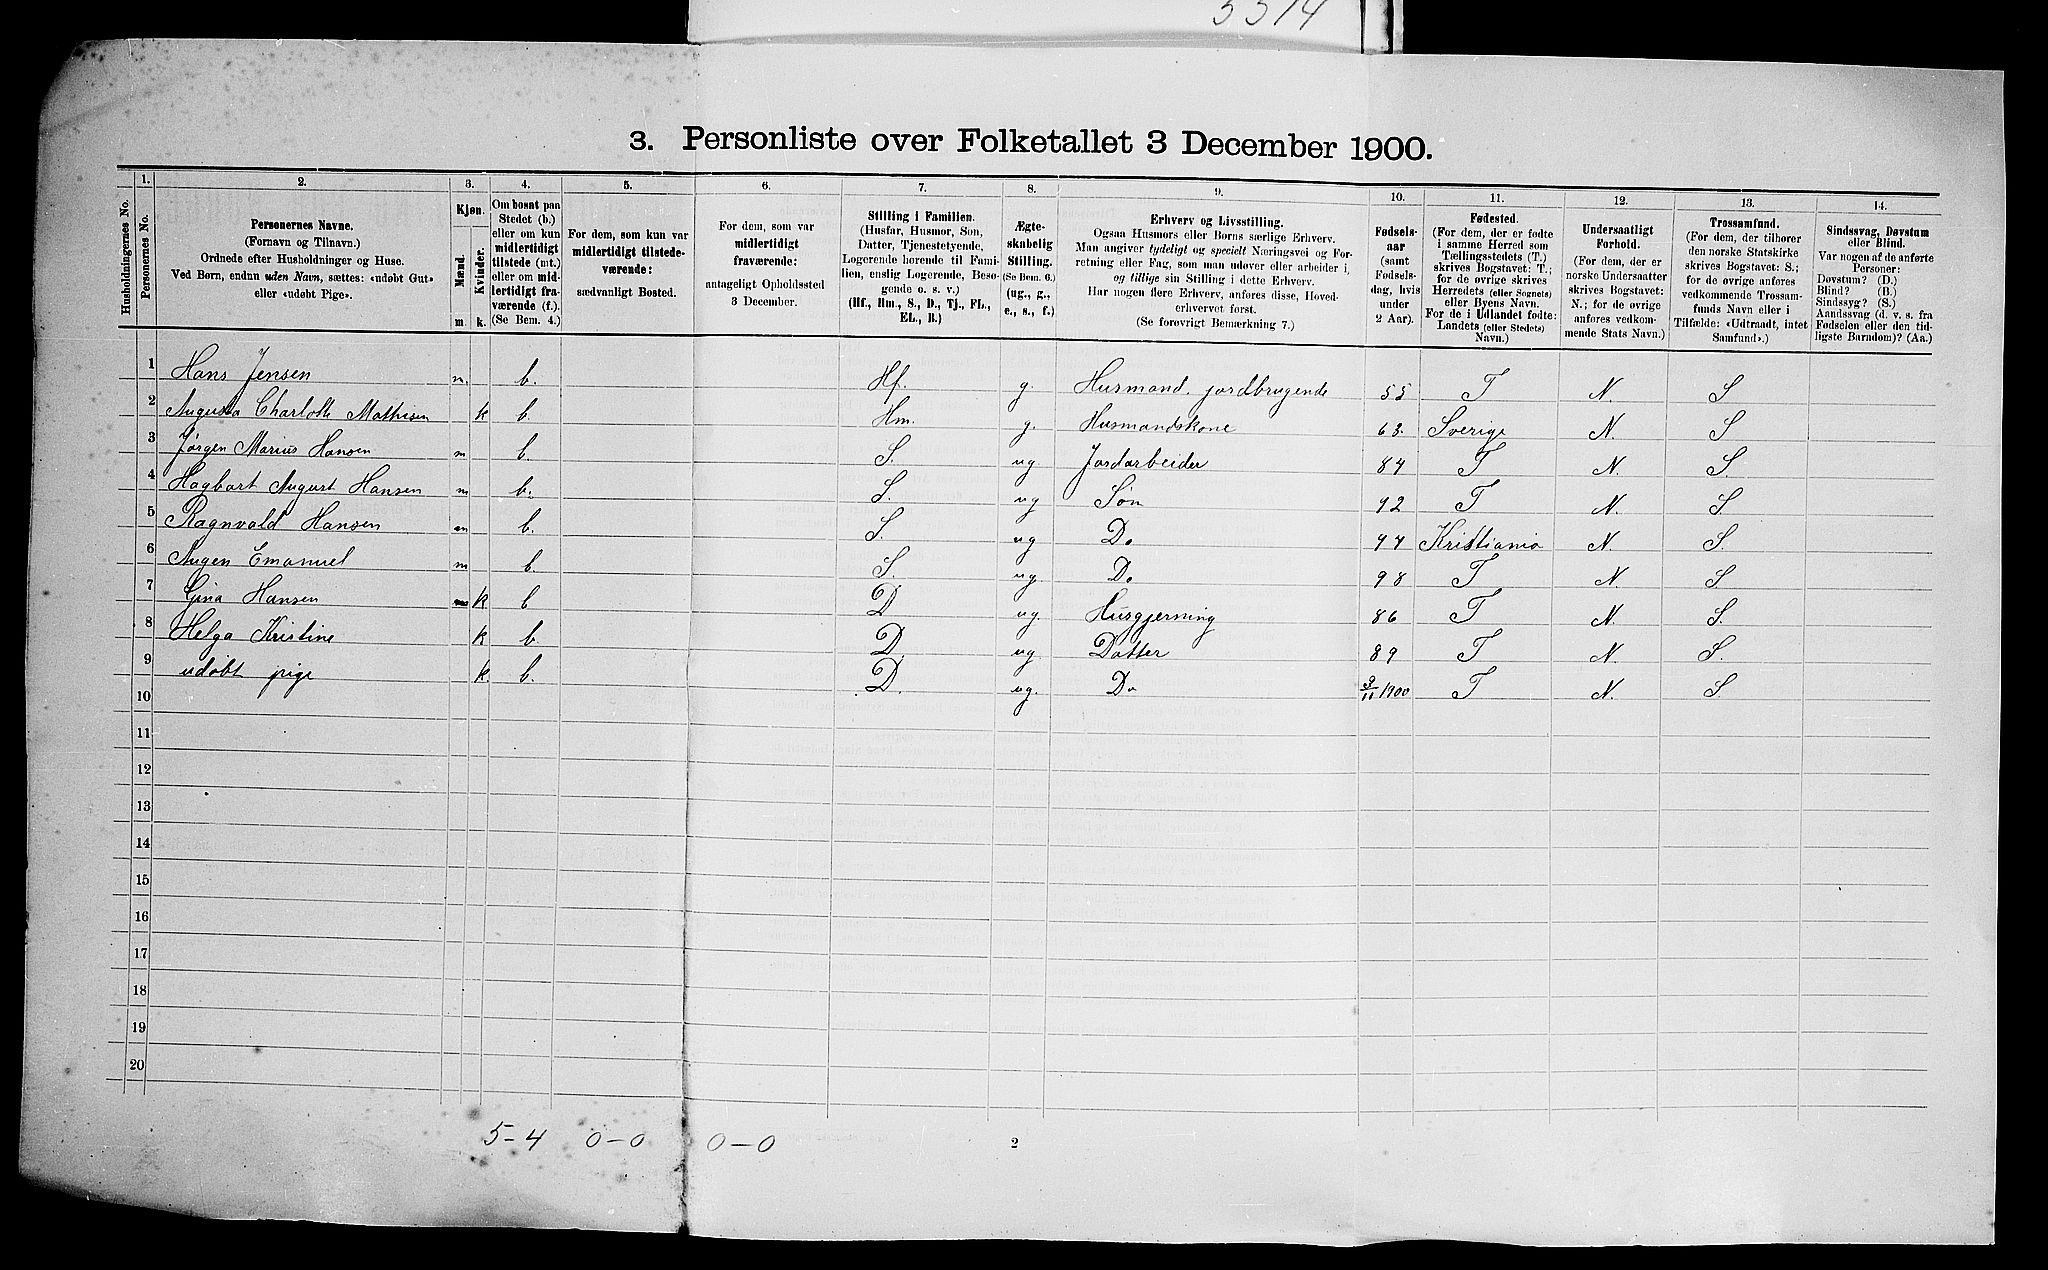 5514
3. Personliste over Folketallet 3 December 1900.
Husholdningernes No.
1.
Personernes No.
2.
Personernes Navne.
(Fornavn og Tilnavn.)
Ordnede efter Husholdninger og Huse.
Ved Børn, endnu uden Navn, sættes: «udøbt Gut»
eller «udøbt Pige».
3.
Kjøn.
Mænd.
Kvinder.
m.
k.
4.
Om bosat paa
Stedet (b.)
eller om kun
midlertidigt
tilstede (mt.)
eller om mid-
lertidigt fra-
værende (f.).
(Se Bem. 4.)
5.
For dem, som kun var
midlertidigt tilstede-
værende:
sædvanligt Bosted.
6.
For dem, som var
midlertidigt
fraværende:
antageligt Opholdssted
3 December.
7.
Stilling i Familien.
(Husfar, Husmor, Søn,
Datter, Tjenestetyende,
Logerende hørende til Fami-
lien, enslig Logerende, Besø-
gende o. s. v.)
(Hf., Hm., S., D., Tj., FL.,
EL., B.)
8.
Ægte-
skabelig
Stilling.
(Se Bem. 6.)
(ug., g.,
e., s., f.)
9.
Erhverv og Livsstilling.
Ogsaa Husmors eller Børns særlige Erhverv.
Man angiver tydeligt og specielt Næringsvei og For-
retning eller Fag, som man udøver eller arbeider i,
og tillige sin Stilling i dette Erhverv.
Har nogen flere Erhverv, anføres disse, Hoved-
erhvervet først.
(Se forøvrigt Bemærkning 7.)
10.
Fødsels-
aar
(samt
Fødsels-
dag, hvis
under
2 Aar).
11.
Fødested.
(For dem, der er fødte
i samme Herred som
Tællingsstedets (T.)
skrives Bogstavet: T.;
for de øvrige skrives
Herredets (eller Sognets)
eller Byens Navn.
For de i Udlandet fødte:
Landets (eller Stedets)
Navn.)
12.
Undersaatligt
Forhold.
(For dem, der er
norske Undersaatter
skrives Bogstavet:
N.; for de øvrige
anføres vedkom-
mende Stats Navn.)
13.
Trossamfund.
(For dem, der tilhører
den norske Statskirke
skrives Bogstavet: S.;
for de øvrige anføres
vedkommende Trossam-
funds Navn eller i
Tilfælde: «Udtraadt, intet
Samfund».)
14.
Sindssvag, Døvstum
eller Blind.
Var nogen af de anførte
Personer:
Døvstum? (D.)
Blind? (B.)
Sindssyg? (S.)
Aandssvag (d. v. s. fra
Fødselen eller den tid-
ligste Barndom)? (Aa.)
1 Hans Jensen m. b. Hf. g. Husmand, jordbrugende 55 T N. S
2 Augusta Charlotte Mathisen k b. Hm. g. Husmandskone 63. Sverige N. S
3 Jørgen Marius Hansen m b. S. ug. Jordarbeider 84 T N. S.
4 Hagbart August Hansen m b. S. ug Søn 92 T N. S.
5 Ragnvald Hansen m b. S. ug Do 94 Kristiania N. S.
6 Augen Emanuel m b. S. ug. Do 98 T N. S
7 Gina Hansen k b D ug. Husgjerning 86 T N. S.
8 Helga Kristine k b. D. ug. Datter 89 T N. S.
9 udøbt pige k. b. D. ug. Do 9/11 1900 T N. S.
10
11
12
13
14
15
16
17
18
19
20
5-4 0-0 0-0 2